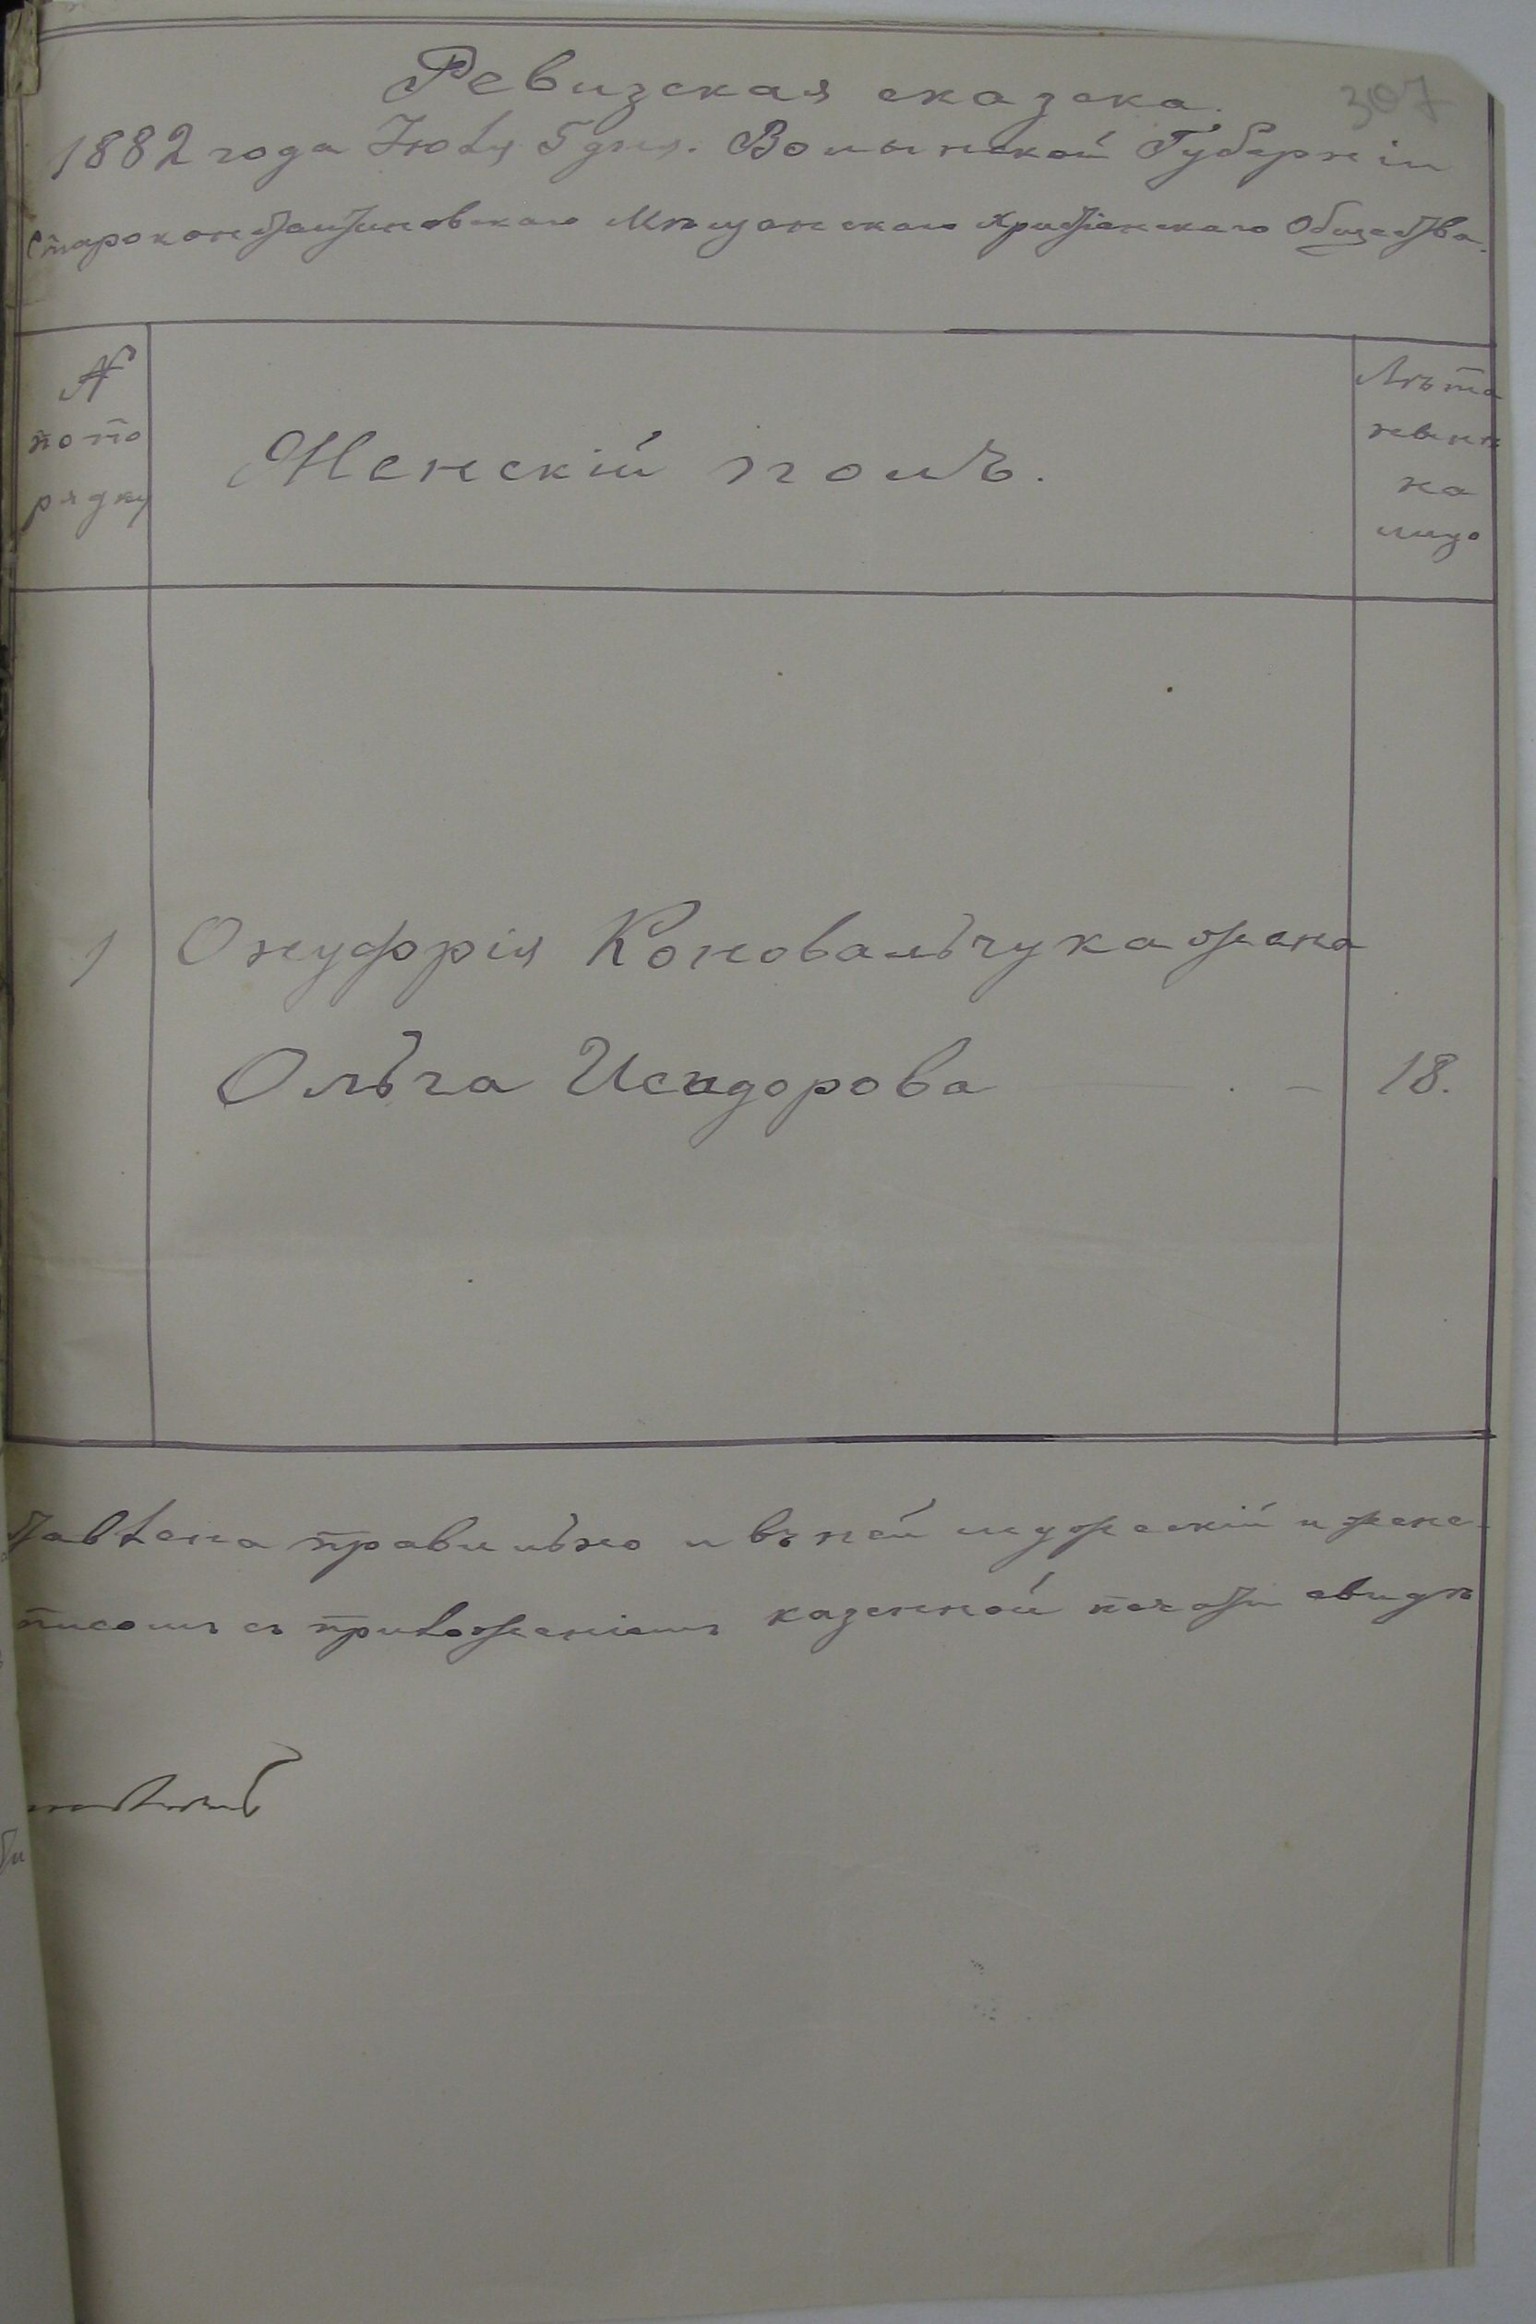 307
Ревизская сказска.
1882 года Іюля 5 дня. Волынской Губерніи
Староконстантиновскаго Мѣщанскаго Христіанскаго Общества.
№ по по рядку
Женскій полъ.
Лѣта нынѣ на лицо
1 Онуфрія Коновальчука жена
Ольга Исидорова — 18.
тавлена правильно и въ ней мужескій и женс-
писомъ съ приложеніемъ казенной печати свидѣ